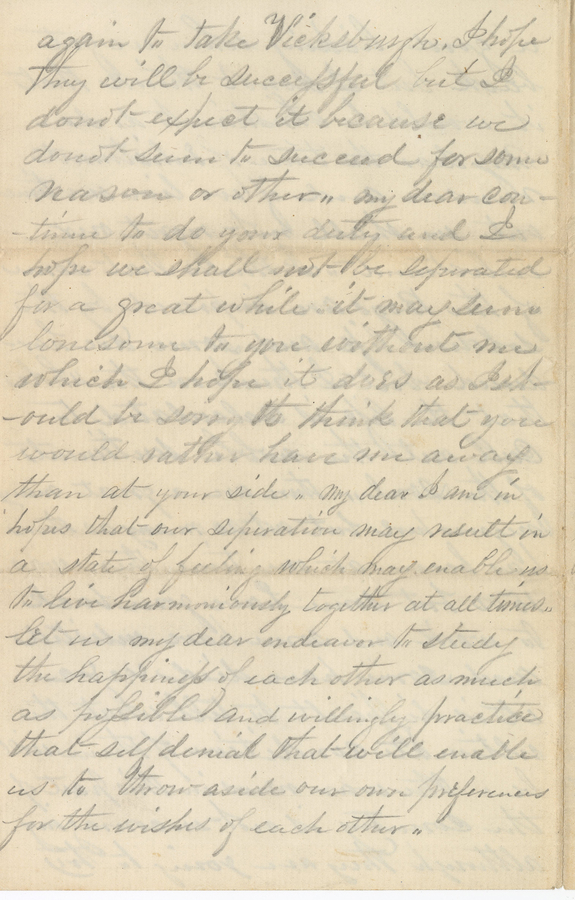 again to take Vicksburgh. I hope
they will be successful but I
donot expect it because we
donot seem to succeed for some
reason or other,, my dear con-
-tinue to do your duty and I
hope we shall not be seperated
for a great while it may seem
lonesome to you without me
which I hope it does as I sh-
-ould be sorry to think that you
would rather have me away
than at your side,, my dear I am in
hopes that our seperation may result in
a state of feeling which may enable us
to live harmoniously together at all times,,
let us my dear endeavor to study
the happiness of each other as much
as possible and willingly practice
that self denial that will enable
us to throw aside our own preferences
for the wishes of each other,,